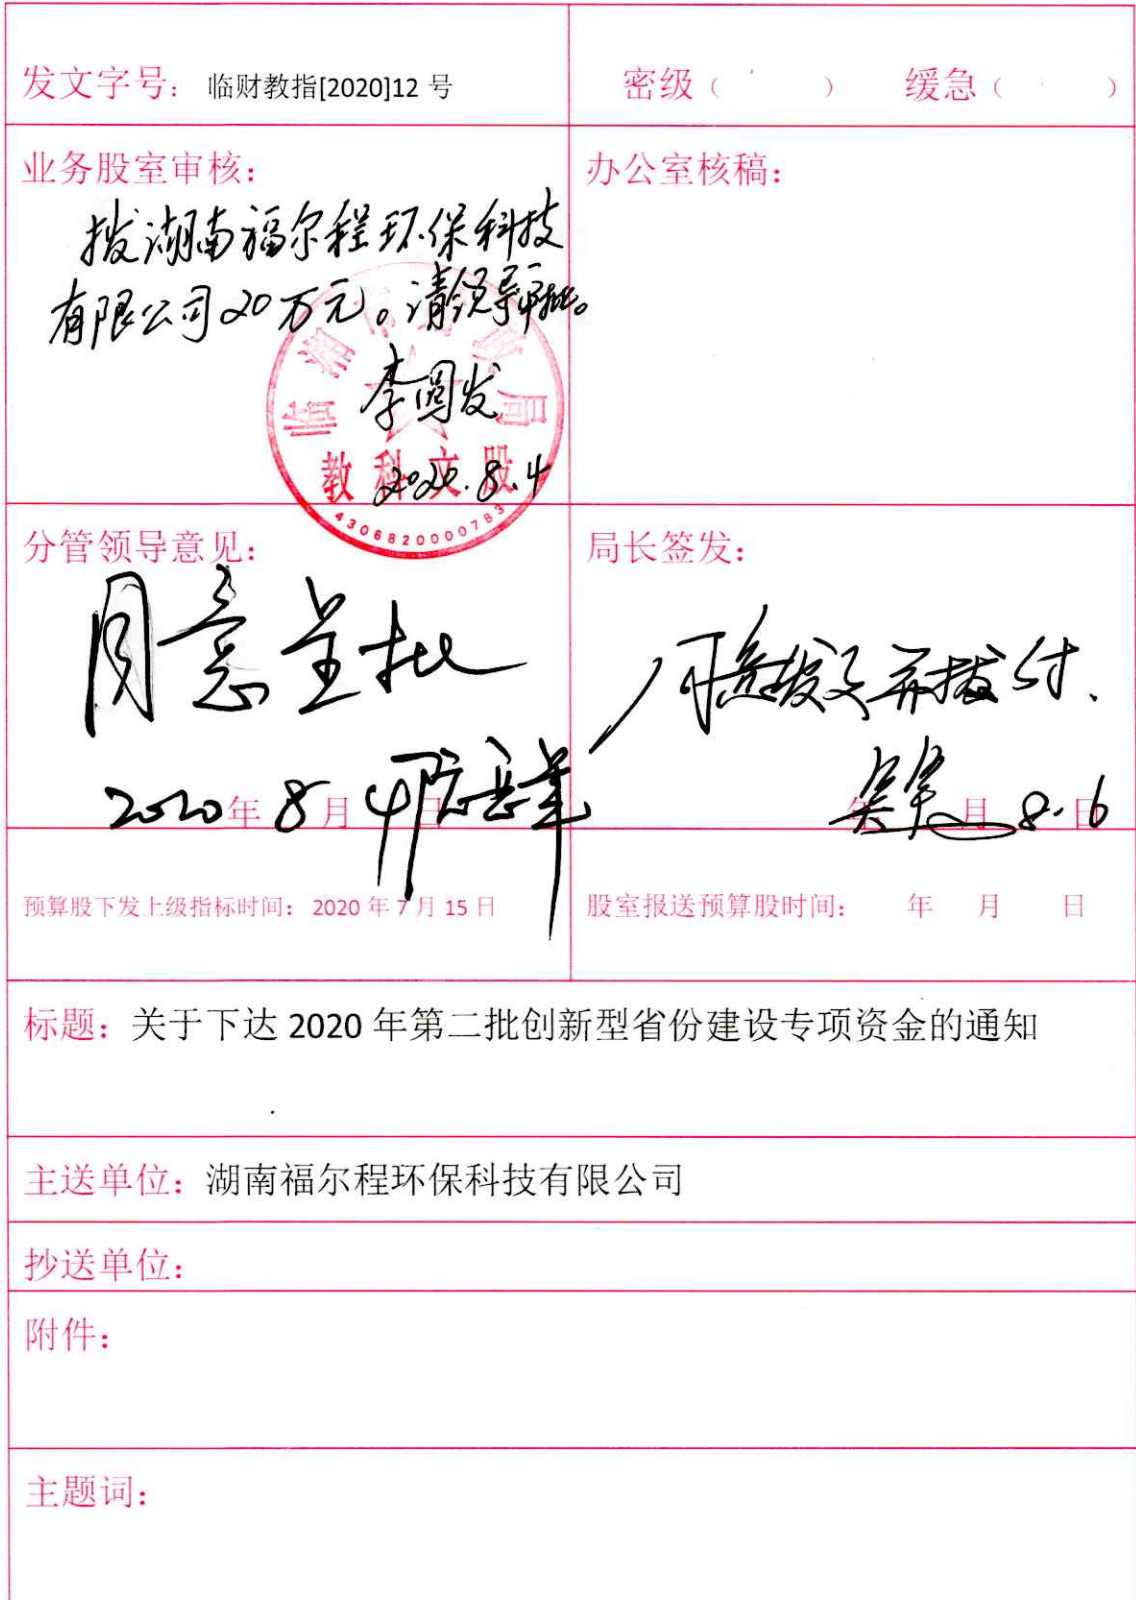 发文字号：临财教指[2020]12 号
密级（ ） 缓急（ ）
业务股室审核：
拨湖南福尔程环保科技
有限公司20万元。请领导审批。
李国发
2020.8.4
临湘市财政局
教科文股
4306820000783
办公室核稿：
分管领导意见：
同意呈批
2020年 8月 4日
局长签发：
同意拨文并拨付、
年 月 8.6 日
预算股下发上级指标时间： 2020 年 7 月 15 日
股室报送预算股时间： 年 月 日
标题：关于下达 2020 年第二批创新型省份建设专项资金的通知
主送单位：湖南福尔程环保科技有限公司
抄送单位：
附件：
主题词：